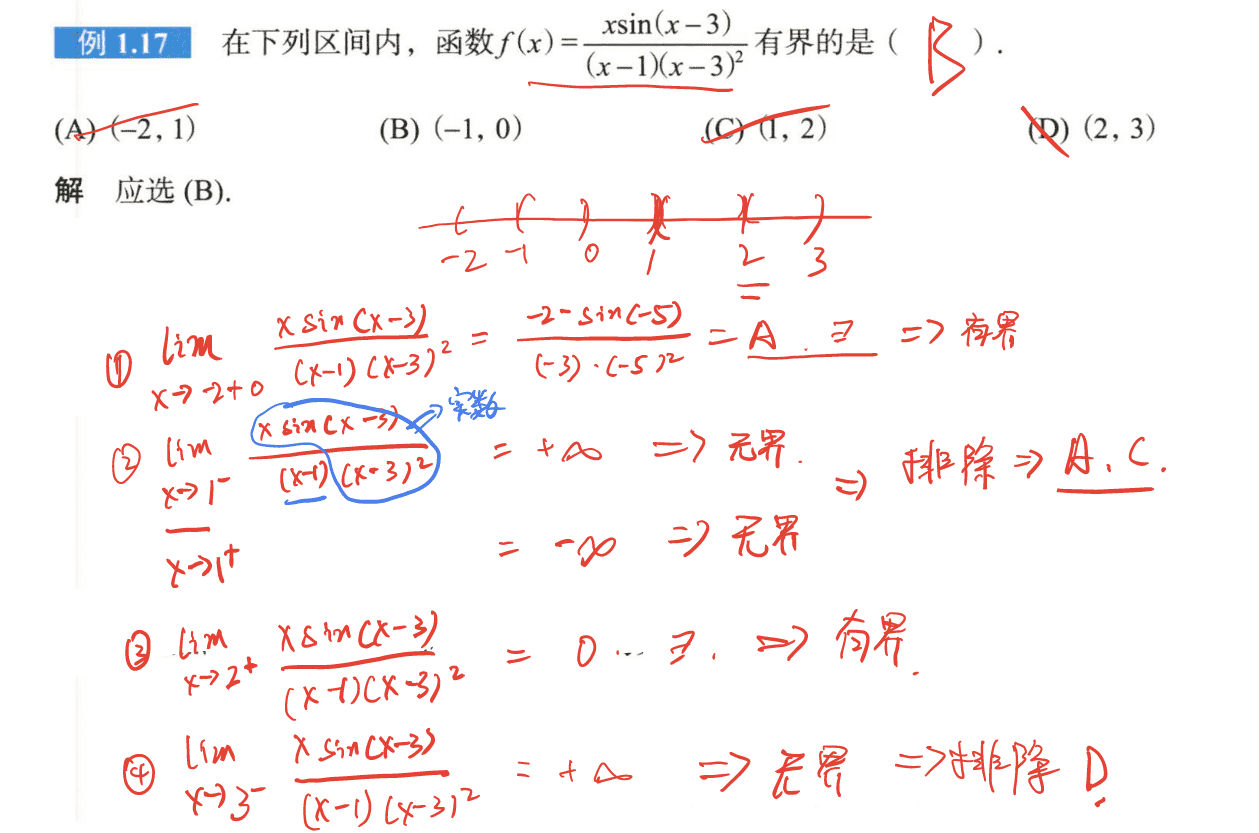 例 1.17 在下列区间内，函数f(x)=\frac{x\sin(x-3)}{(x-1)(x-3)^2}有界的是（ B ）.
(A) (-2, 1) (B) (-1, 0) (C) (1, 2) (D) (2, 3)
解 应选 (B).
-2 -1 0 1 2 3
① \lim_{x→-2+0} \frac{x\sin(x-3)}{(x-1)(x-3)^2} = \frac{-2-\sin(-5)}{(-3)·(-5)^2} = A . ∃ => 有界
② \lim_{x→1^-} \frac{x\sin(x-3)}{(x-1)(x-3)^2} → 实数 = +∞ => 无界. => 排除 => A, C.
x→1^+ = -∞ => 无界
③ \lim_{x→2^+} \frac{x\sin(x-3)}{(x-1)(x-3)^2} = 0 ... ∃. => 有界.
④ \lim_{x→3^-} \frac{x\sin(x-3)}{(x-1)(x-3)^2} = +∞ => 无界 => 排除 D.